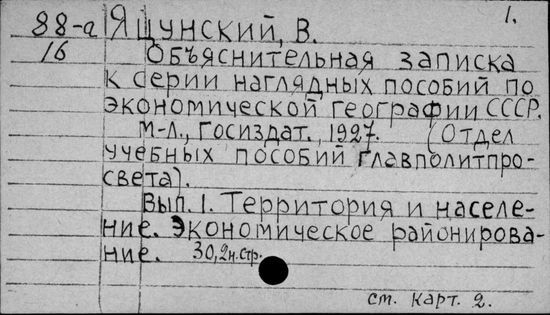 1.
88-а Яцунский, В.
16 Объяснительная записка
к серии наглядных пособий по
экономической географии СССР.
М-Л., Госиздат., 1927. (Отдел
учебных пособий Главполитпро-
света).
Вып. 1. Территория и населе-
ние. Экономическое районирова-
ние. 30,2н.стр.
см. карт. 2.